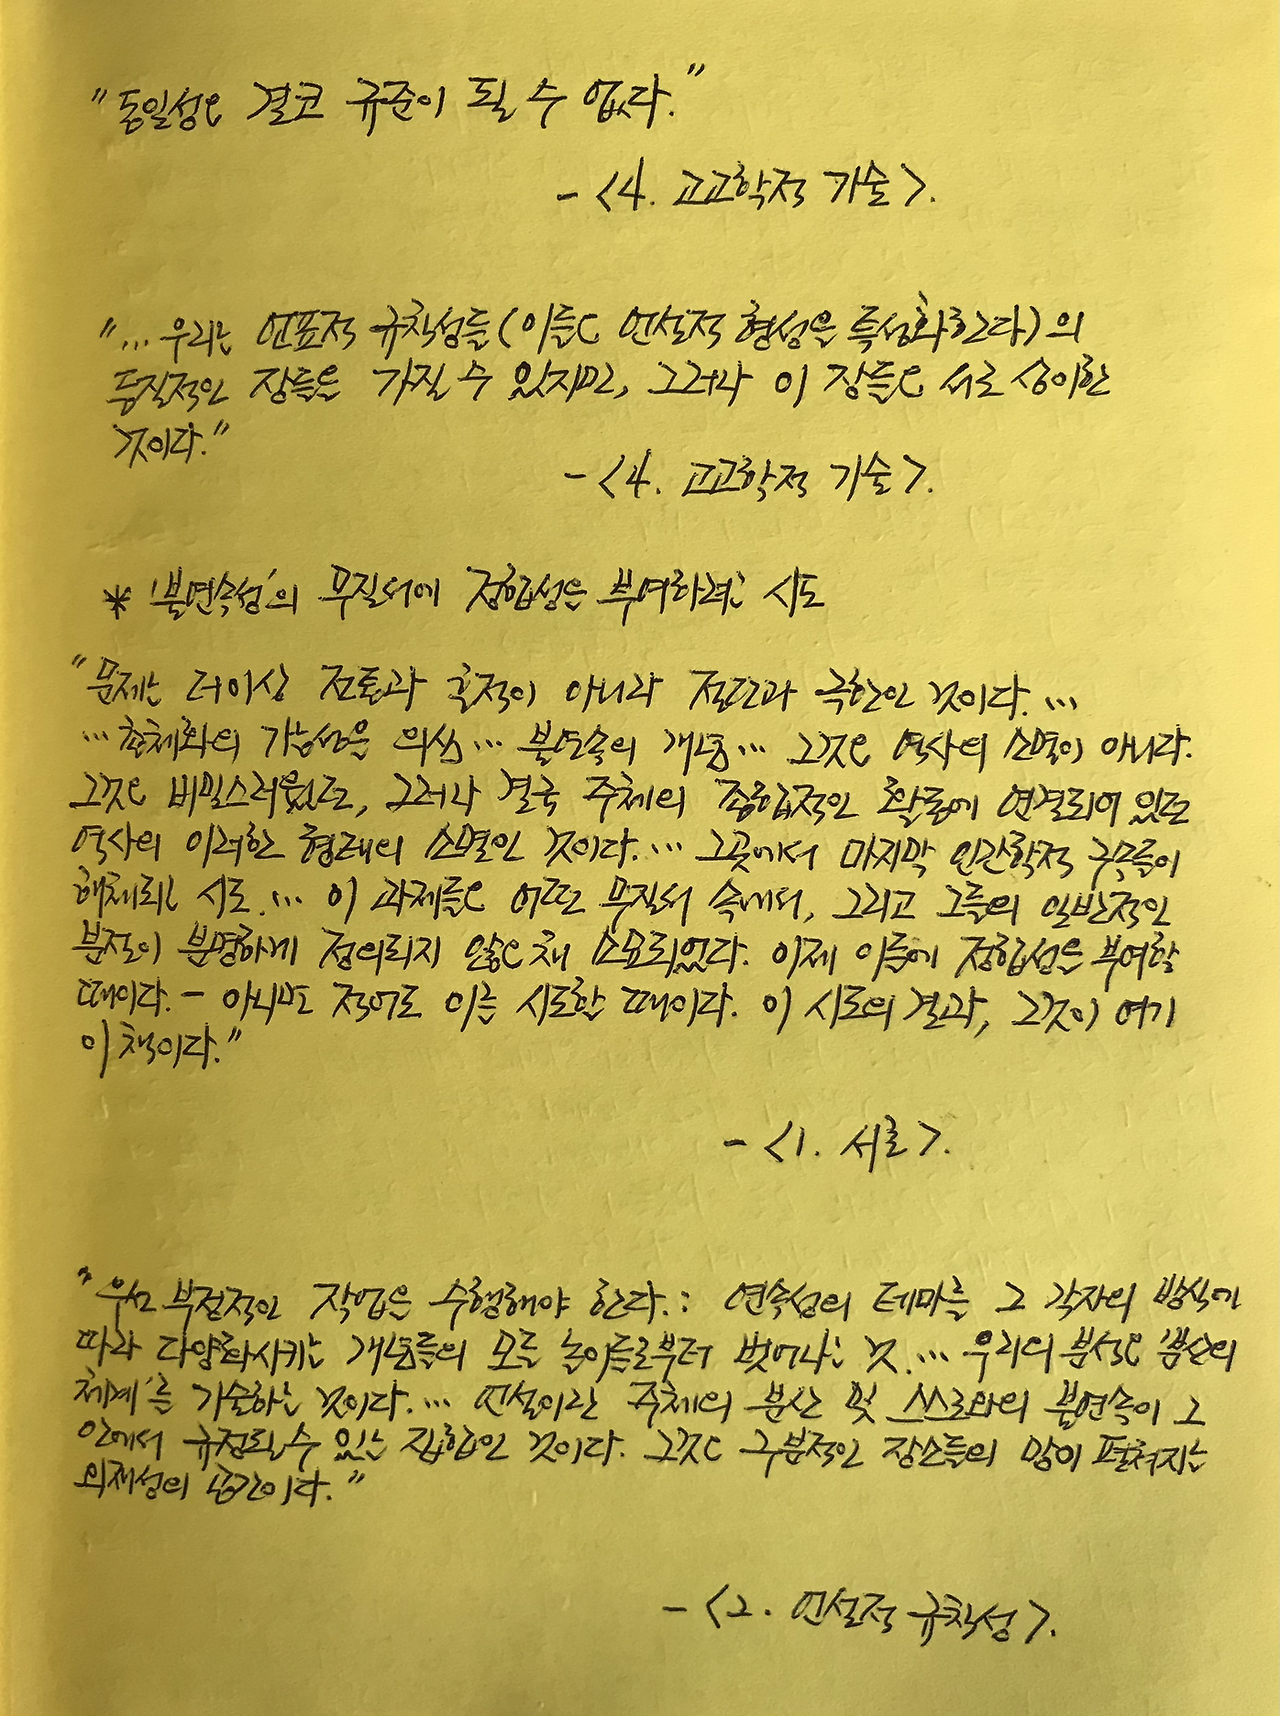 "동일성은 결코 규준이 될 수 없다."
- <4. 고고학적 기술>.
"...우리는 언표적 규칙성들(이들은 언설적 형성을 특성화한다)의
동질적인 장들을 가질 수 있지만, 그러나 이 장들은 서로 상이한
것이다."
- <4. 고고학적 기술>.
* '불연속성'의 무질서에 정합성을 부여하려는 시도
"문제는 더이상 전통과 흔적이 아니라 절단과 극한인 것이다. ...
... 총체화의 가능성을 의심... 불연속의 개념... 그것은 역사의 소멸이 아니다.
그것은 비밀스러웠던, 그러나 결국 주체의 종합적인 활동에 연결되어 있던
역사의 이러한 형태의 소멸인 것이다. ... 그곳에서 마지막 인간학적 구속들이
해체되는 시도. ... 이 과제들은 어떤 무질서 속에서, 그리고 그들의 일반적인
분절이 분명하게 정의되지 않은 채 소묘되었다. 이제 이들에 정합성을 부여할
때이다. - 아니면 적어도 이를 시도할 때이다. 이 시도의 결과, 그것이 여기
이 책이다."
- <1. 서론>.
"우선 부정적인 작업을 수행해야 한다.: 연속성의 테마를 그 각자의 방식에
따라 다양화시키는 개념들의 모든 놀이들로부터 벗어나는 것. ... 우리의 분석은 '분산의
체계'를 기술하는 것이다. ... 언설이란 주체의 분산 및 스스로와의 불연속이 그
안에서 규정될 수 있는 집합인 것이다. 그것은 구분적인 장소들의 망이 펼쳐지는
외재성의 공간이다."
- <2. 언설적 규칙성>.